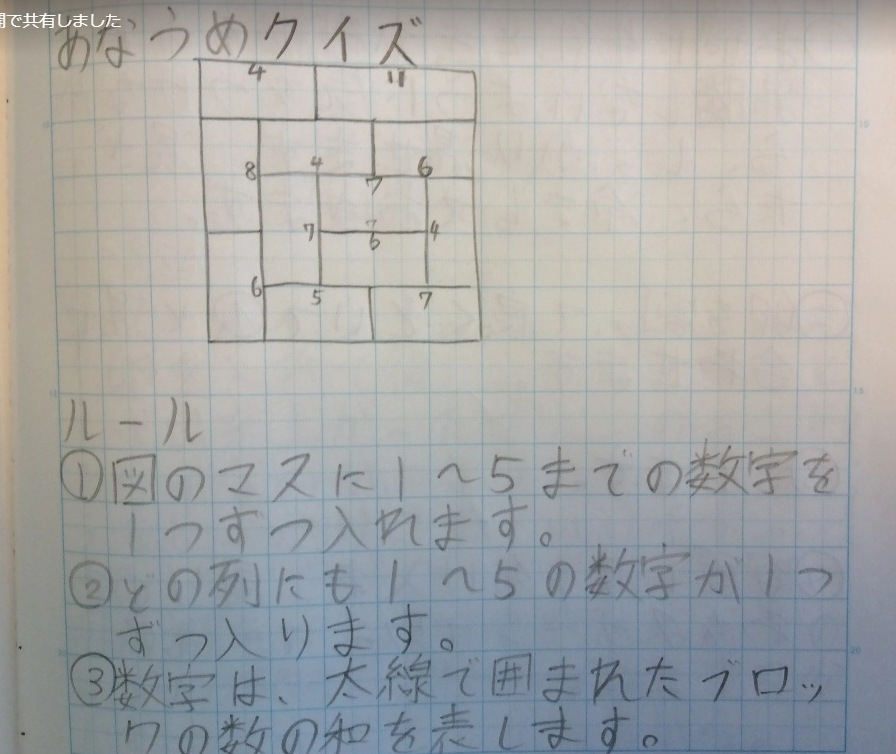 開で共有しました
あなうめクイズ
4 11
8 4 7 6
7 6 4
6 5 7
ルール
①図のマスに1～5までの数字を
1つずつ入れます。
②どの列にも1～5の数字が1つ
ずつ入ります。
③数字は、太線で囲まれたブロッ
クの数の和を表します。